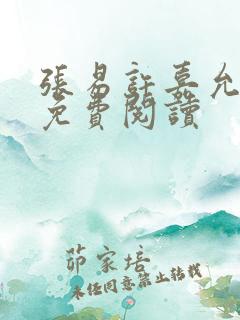 張易許嘉允
免費閱讀
茆家培
未经同意禁止转载